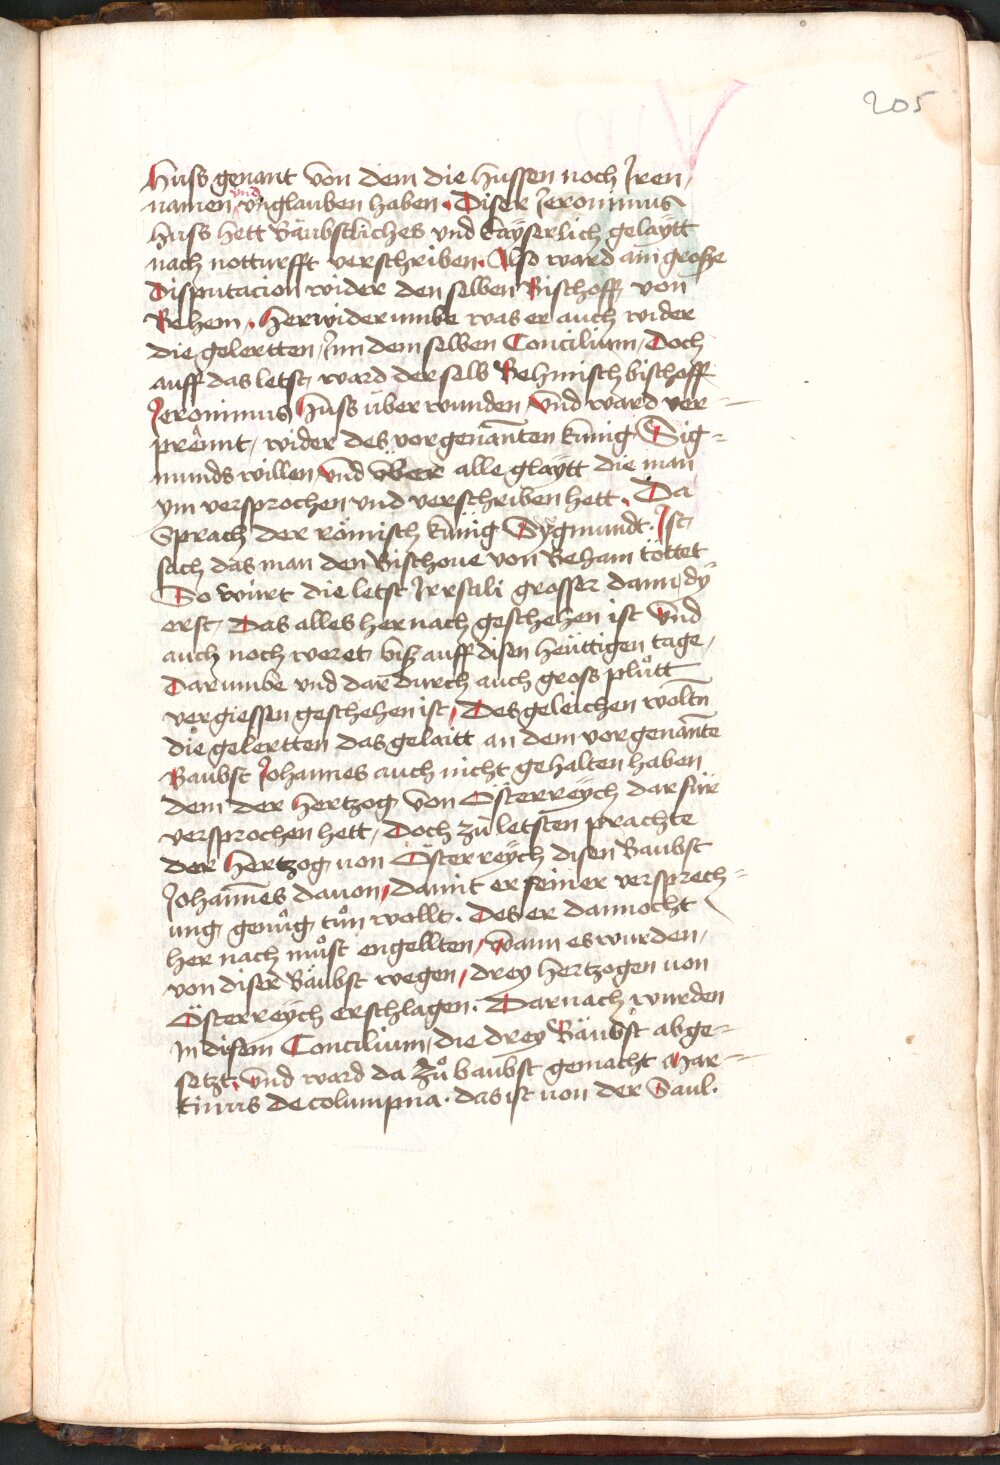 205
Huss genant von dem die Hussen noch Jren
namen und vnglauben haben. Diser Jeronimus
Huss hett Bäubstliches vnd kayserlich gelaytt
nach notturfft verschriben. Also ward ain grosse
Disputacion wider den selben Bischoff von
Behem. Herwiderumbe was er auch wider
die gelertten Jnn dem selben Concilium, Doch
auff das letst ward der selb Behmisch bischoff
Jeronimus Huss über wunden vnd ward ver-
prennt, wider des vorgenanten künig Sig=
munds willen vnd über alle glaytt die man
ym versprochen vnd verschriben hett. Da
Sprach der römisch künig Sygmundt. Jst
sach das man den Bischoue von Beham töttet
So wirt die letst Jrrsali grosser dann dy
erst Das alles her nach geschehen ist vnd
auch noch weret bisz auff disen heüttigen tage,
Darumbe vnd dar durch auch gross plůtt
vergiessen geschehen ist, Des geleichen woltn
die gelertten das gelaitt an dem vorgenante
Baubst Johannes auch nicht gehalten haben
dem der Hertzog von Österreych dar für
versprochen hett, Doch zů letsten prachte
der Hertzog von Österreych disen Baubst
Johannes dauon, damit er seiner versprech=
ung genůg tůn wollt. Des er dannocht
her nach můst engellten, wann es wurden,
von diser Bäubst wegen, drey Hertzogen von
Österreych erschlagen. Darnach wurden
in disem Concilium, die drey Bäubst abge=
setzt, vnd ward da zů baubst gemacht Mar=
tinus de columpna. das ist von der Saul.